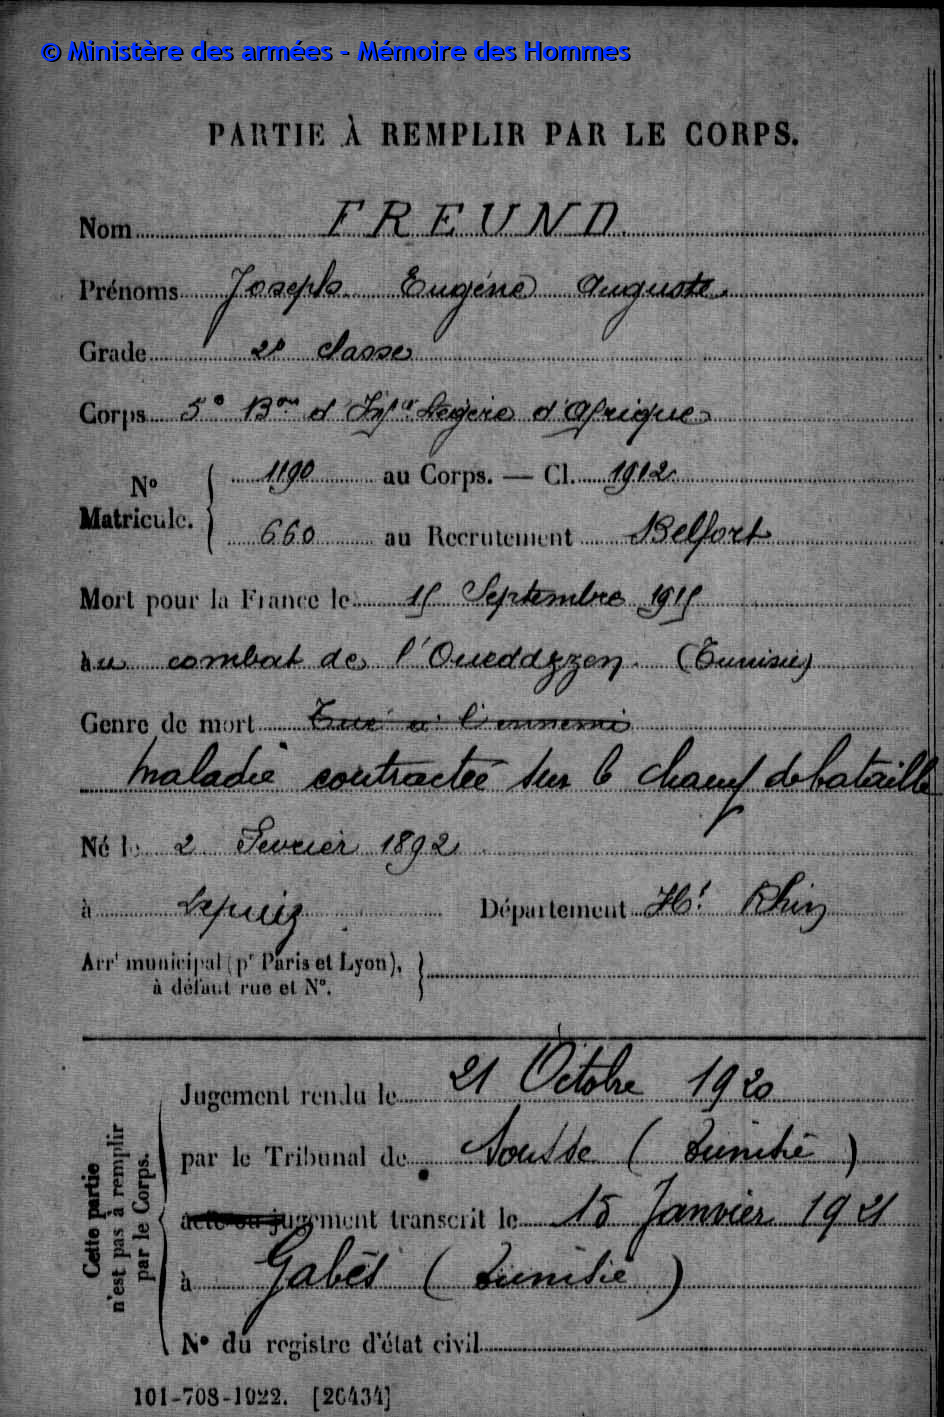 © Ministère des armées - Mémoire des Hommes
PARTIE À REMPLIR PAR LE CORPS.
Nom FREUND
Prénoms Joseph Eugène Auguste
Grade 2e classe
Corps 5e Bon d'Infie Légère d'Afrique
No Matricule. 1190 au Corps. — Cl. 1912
660 au Recrutement Belfort
Mort pour la France le 15 Septembre 1915
au combat de l'Oueddzzen (Tunisie)
Genre de mort Tué à l'ennemi
maladie contractée sur le champ de bataille
Né le 2 Fevrier 1892
à Lepuix Département Ht Rhin
Arrt municipal (pr Paris et Lyon),
à défaut rue et No.
Cette partie n'est pas à remplir par le Corps.
Jugement rendu le 21 Octobre 1920
par le Tribunal de Sousse (Tunisie)
acte ou jugement transcrit le 15 Janvier 1921
à Gabès (Tunisie)
No du registre d'état civil
101-708-1922. [26434]